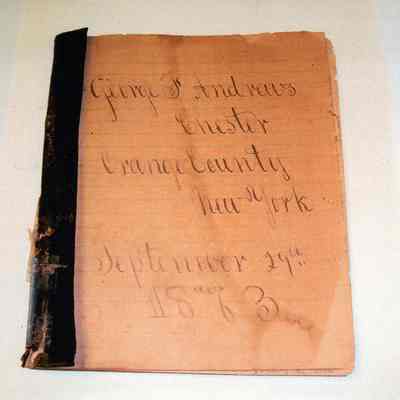 George Andrews
Chester
Orange County
New York
September 29th
1863